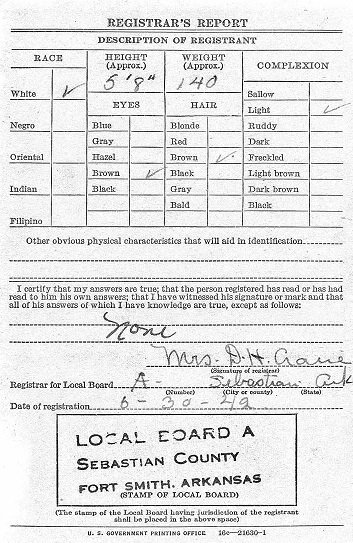 REGISTRAR'S REPORT
DESCRIPTION OF REGISTRANT
RACE HEIGHT (Approx.) WEIGHT (Approx.) COMPLEXION
5' 8" 140
White ✓ Sallow
EYES HAIR Light ✓
Negro Blue Blonde Ruddy
Gray Red Dark
Oriental Hazel Brown ✓ Freckled
Brown ✓ Black Light brown
Indian Black Gray Dark brown
Bald Black
Filipino
Other obvious physical characteristics that will aid in identification
I certify that my answers are true; that the person registered has read or has had
read to him his own answers; that I have witnessed his signature or mark and that
all of his answers of which I have knowledge are true, except as follows:
None
Mrs. D. H. Crane
(Signature of registrar)
Registrar for Local Board A - Sebastian Ark
(Number) (City or county) (State)
Date of registration 6 - 30 - 42
LOCAL BOARD A
SEBASTIAN COUNTY
FORT SMITH, ARKANSAS
(STAMP OF LOCAL BOARD)
(The stamp of the Local Board having jurisdiction of the registrant
shall be placed in the above space)
U. S. GOVERNMENT PRINTING OFFICE 16c—21630-1